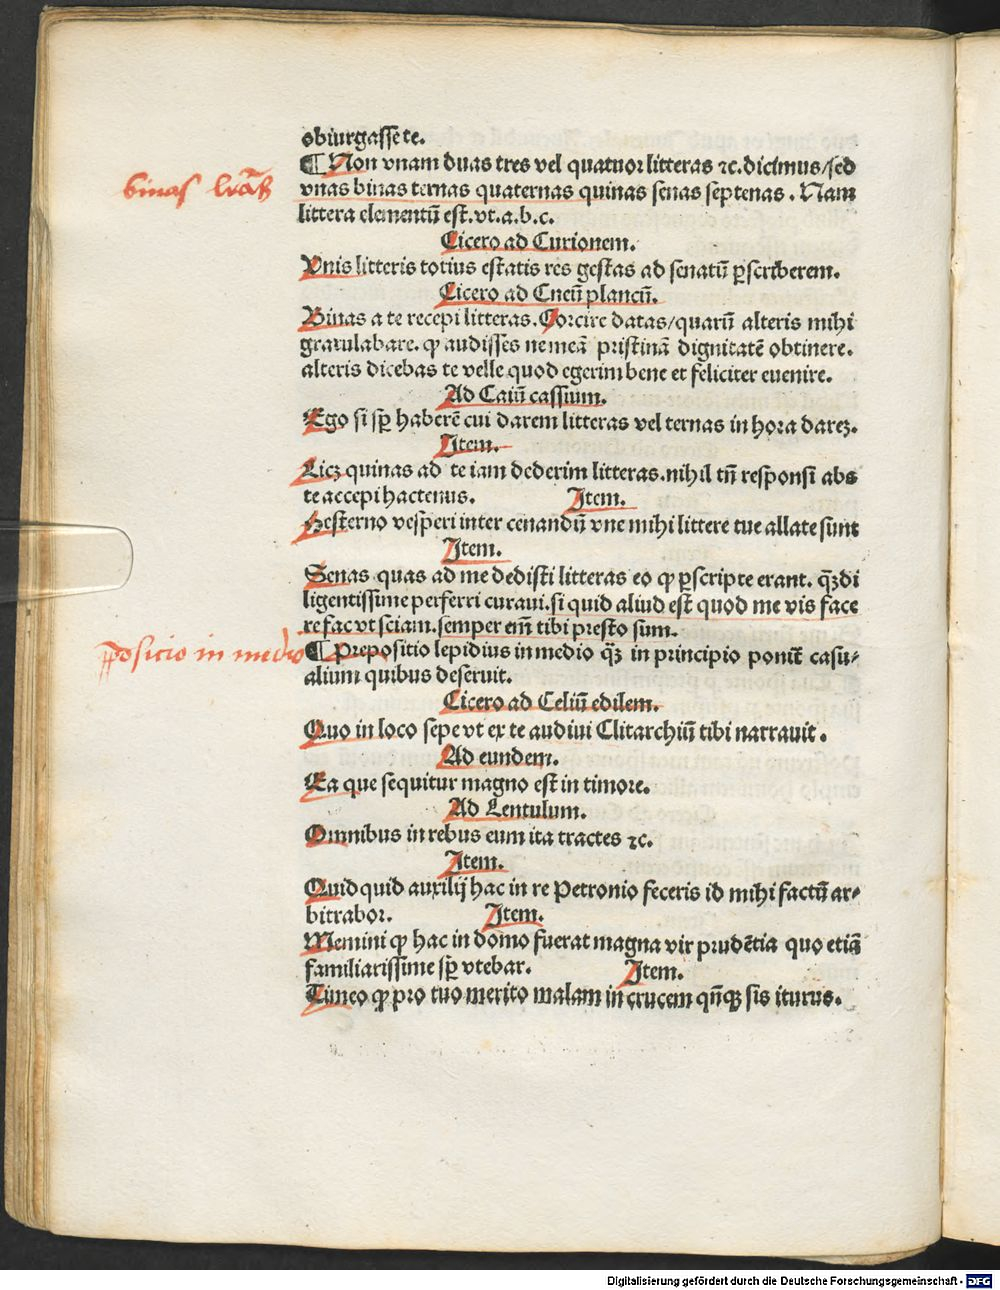 obiurgasse te.
¶ Non vnam duas tres vel quatuor litteras ⁊c. dicimus/sed
binas lr̄as
vnas binas ternas quaternas quinas senas septenas. Nam
littera elementū est. vt. a. b. c.
Cicero ad Curionem.
Vnis litteris totius estatis res gestas ad senatū ꝑscriberem.
Cicero ad Cneū plancū.
Binas a te recepi litteras. Corcire datas/quarū alteris mihi
gratulabare. ꝙ audisses me meā pristinā dignitatē obtinere.
alteris dicebas te velle quod egerim bene et feliciter euenire.
Ad Caiū cassium.
Ego si sꝑ haberē cui darem litteras vel ternas in hora darēꝫ.
Item.
Licꝫ quinas ad te iam dederim litteras. nihil tn̄ responsi abs
te accepi hactenus. Item.
Hesterno vesperi inter cenandū vne mihi littere tue allate sunt
Item.
Senas quas ad me dedisti litteras eo ꝙ ꝑscripte erant. qꝫdi
ligentissime perferri curaui. si quid aliud est quod me vis face
re fac vt sciam. semper em̄ tibi presto sum.
ꝓposicio in medio
¶ Prepositio lepidius in medio qꝫ in principio ponit̄ casu⸗
alium quibus deseruit.
Cicero ad Celiū edilem.
Quo in loco sepe vt ex te audiui Clitarchiū tibi narrauit.
Ad eundem.
Ea que sequitur magno est in timore.
Ad Lentulum.
Omnibus in rebus eum ita tractes ⁊c.
Item.
Quidquid auxilij hac in re Petronio feceris id mihi factū ar⸗
bitrabor. Item.
Memini ꝙ hac in domo fuerat magna vir prudētia quo etiā
familiarissime sꝑ vtebar. Item.
Timeo ꝙ pro tuo merito malam in crucem qn̄qꝫ sis iturus.
Digitalisierung gefördert durch die Deutsche Forschungsgemeinschaft - DFG